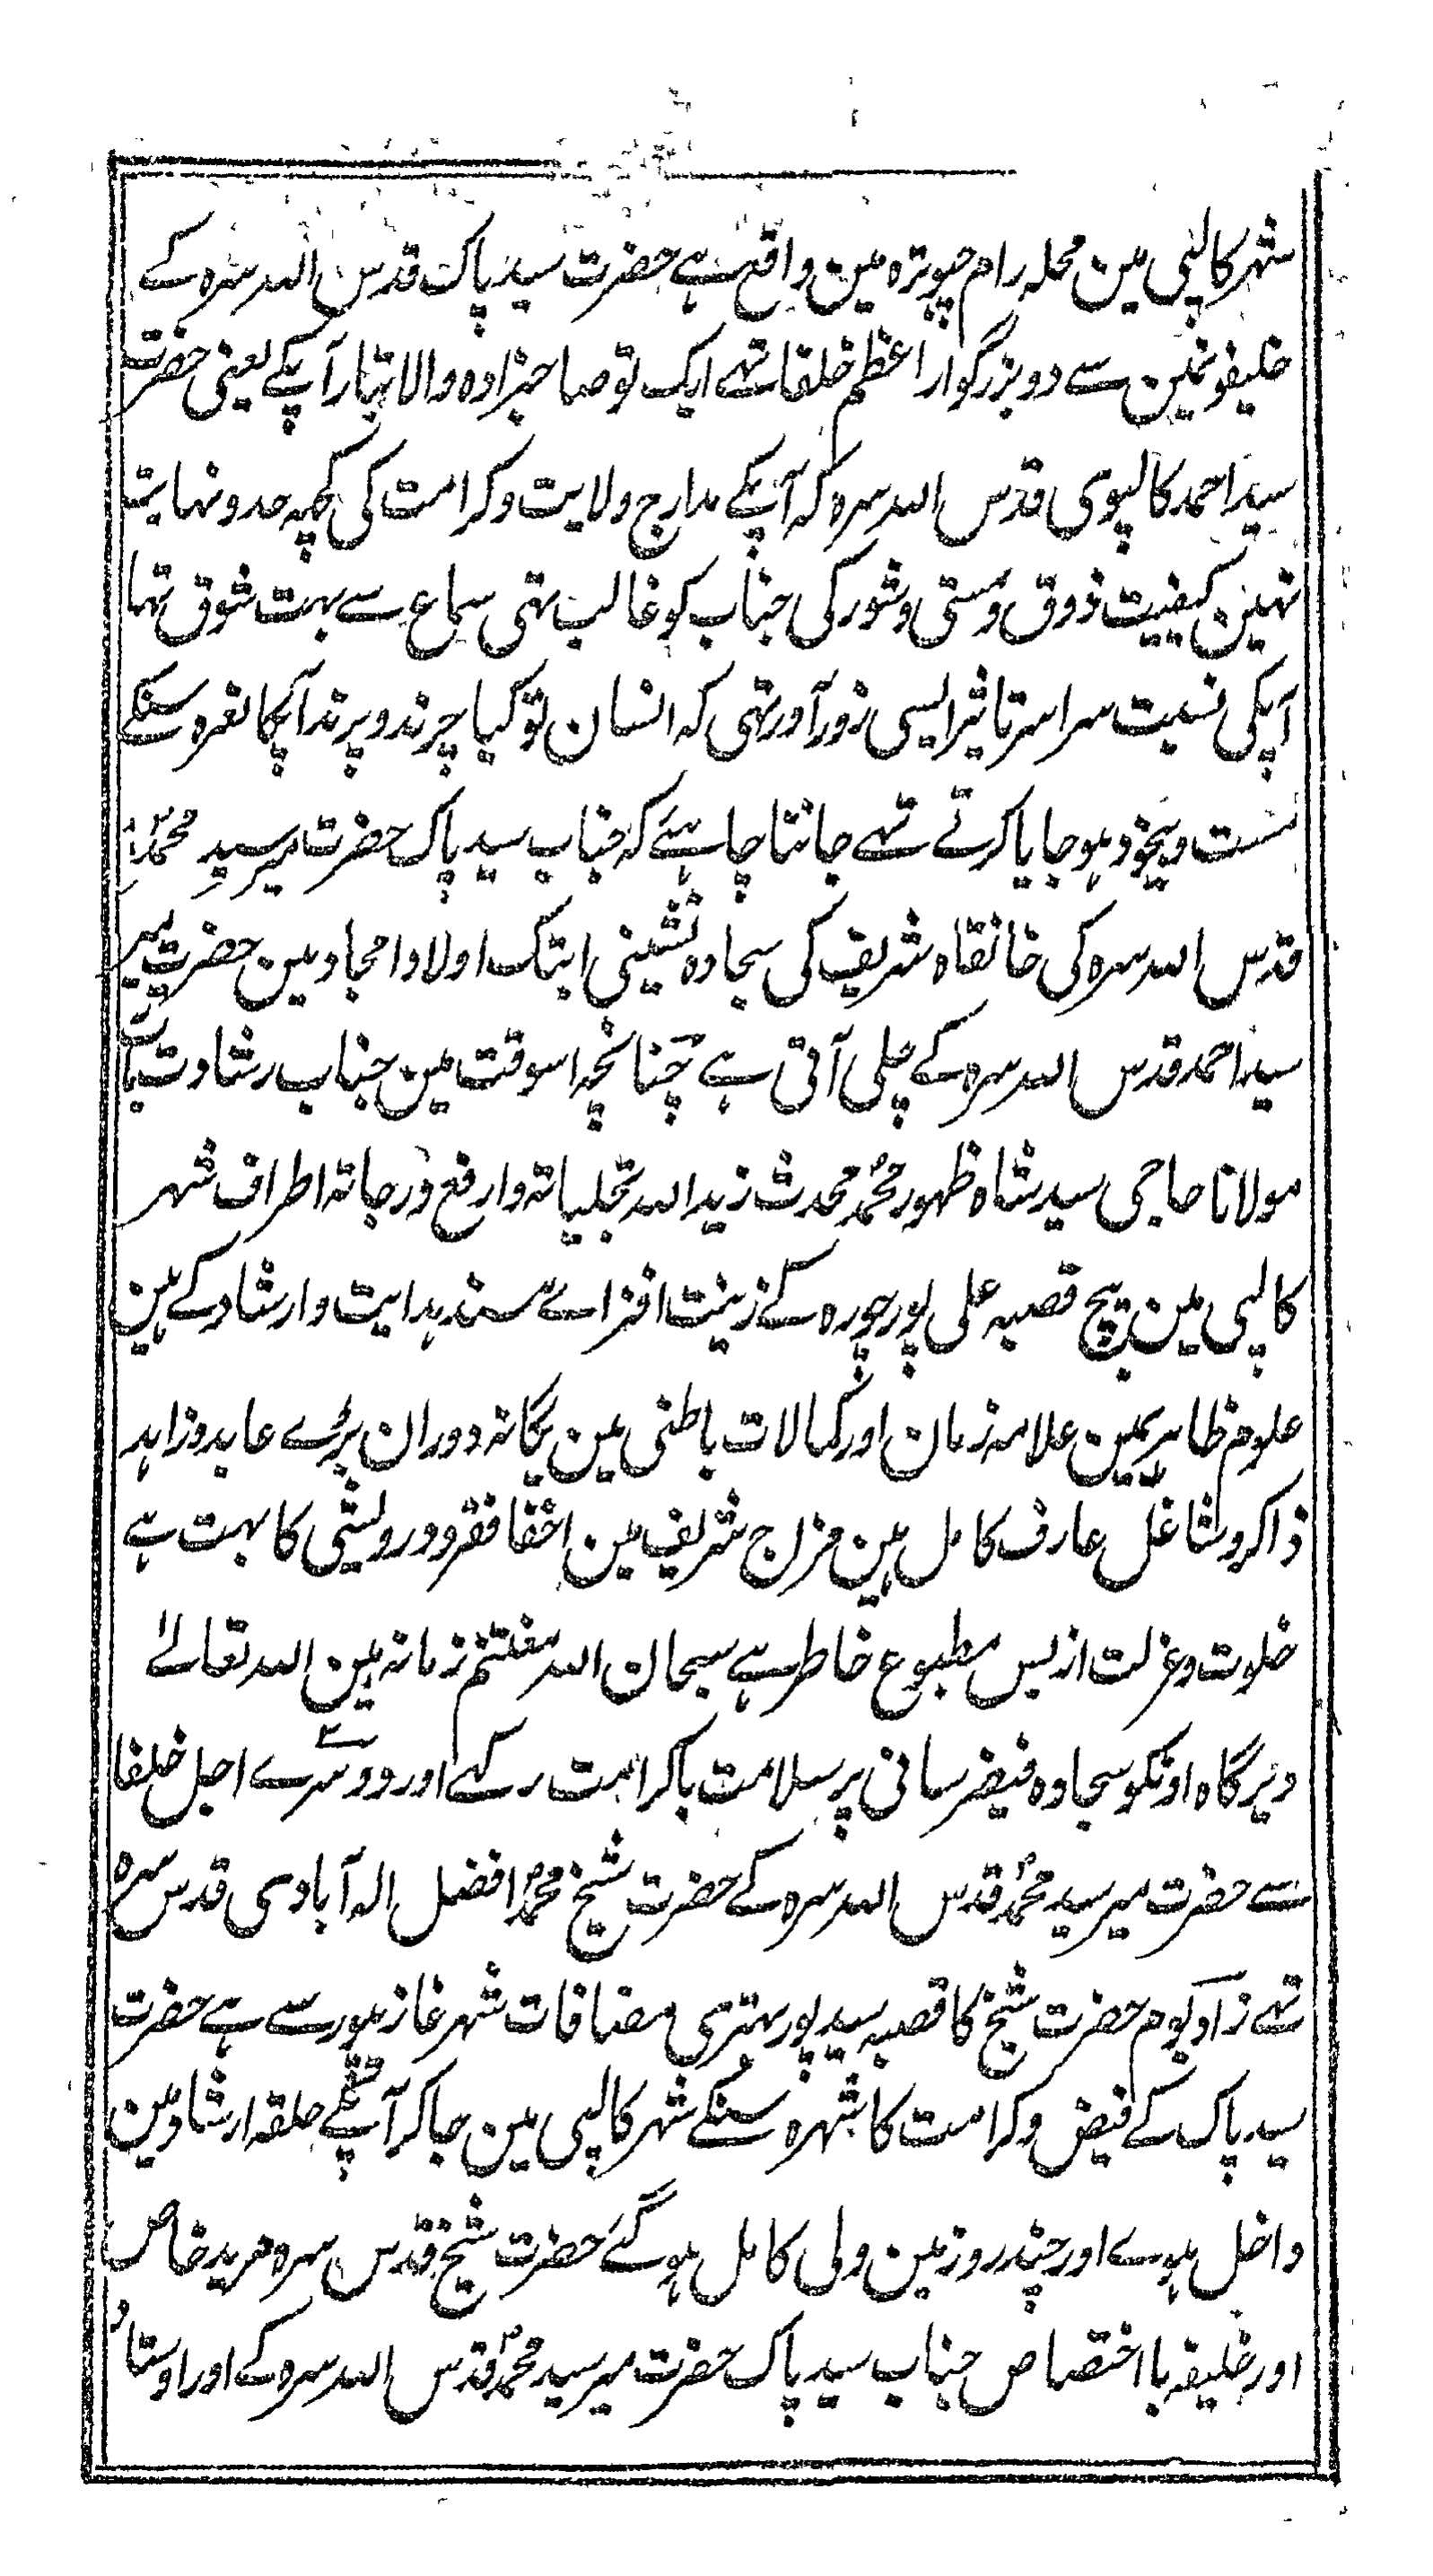 شہر کالپی مین محلہ رام چبوترہ مین واقع ہے حضرت سید پاک قدس اللہ سرہ کے
خلیفونمین سے دو بزرگوار اعظم خلفا تھے ایک تو صاحبزادہ والا تبار آپکے یعنی حضرت
سید احمد کالپوی قدس اللہ سرہ کہ آپکے مدارج ولایت و کرامت کی کچہ حد و نہایت
نہین کیفیت ذوق و مستی و شور کی جناب کو غالب تہی سماع سے بہت شوق تہا
آپکی نسبت سراسر تاثیر ایسی زور آور تہی کہ انسان تو کیا چرند و پرند آپکا نعرہ سنکے
مست و بیخود ہو جایا کرتے تہے جاننا چاہئے کہ جناب سید پاک حضرت میر سید محمد
قدس اللہ سرہ کی خانقاہ شریف کی سجادہ نشینی ابتک اولاد امجاد مین حضرت میر
سید احمد قدس اللہ سرہ کے چلی آتی ہے چنانچہ اسوقت مین جناب رشادت مآب
مولانا حاجی سید شاہ ظہور محمد محدث زید اللہ تجلیاتہ وارفع درجاتہ اطراف شہر
کالپی مین بیچ قصبہ علی پور چورہ کے زینت افزاے مسند ہدایت و ارشاد کے ہین
علوم ظاہریمین علامہ زمان اور کمالات باطنی مین یگانہ دوران بڑے عابد و زاہد
ذاکر و شاغل عارف کامل ہین مزاج شریف مین اخفا فقر و درویشی کا بہت ہے
خلوت و عزلت ازبس مطبوع خاطر ہے سبحان اللہ مغتنم زمانہ ہین اللہ تعالےٰ
دیرگاہ اونکو سجادہ فیضرسانی پر سلامت باکرامت رکہے اور دوسرے اجل خلفا
سے حضرت میر سید محمدؐ قدس اللہ سرہ کے حضرت شیخ محمدؐ افضل الہ آبادی قدس سرہ
تہے زاد بوم حضرت شیخ کا قصبہ سید پور بہتری مضافات شہر غازیپور سے ہے حضرت
سید پاک کے فیض و کرامت کا شہرہ سنکے شہر کالپی مین جا کر آپکے حلقہ ارشاد مین
داخل ہوے اور چند روز مین ولی کامل ہو گئے حضرت شیخ قدس سرہ مرید خاص
اور خلیفہ با اختصاص جناب سید پاک حضرت میر سید محمدؐ قدس اللہ سرہ کے اور اوستاد